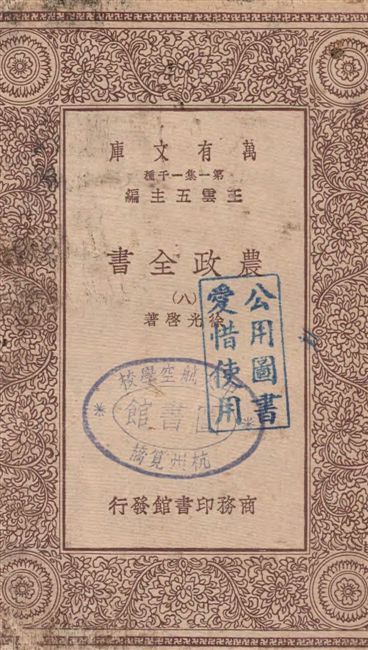 萬有文庫
第一集一千種
王雲五主編
農政全書
(八)
徐光啓著
公用圖書
愛惜使用
航空學校
圖書館
杭州筧橋
商務印書館發行